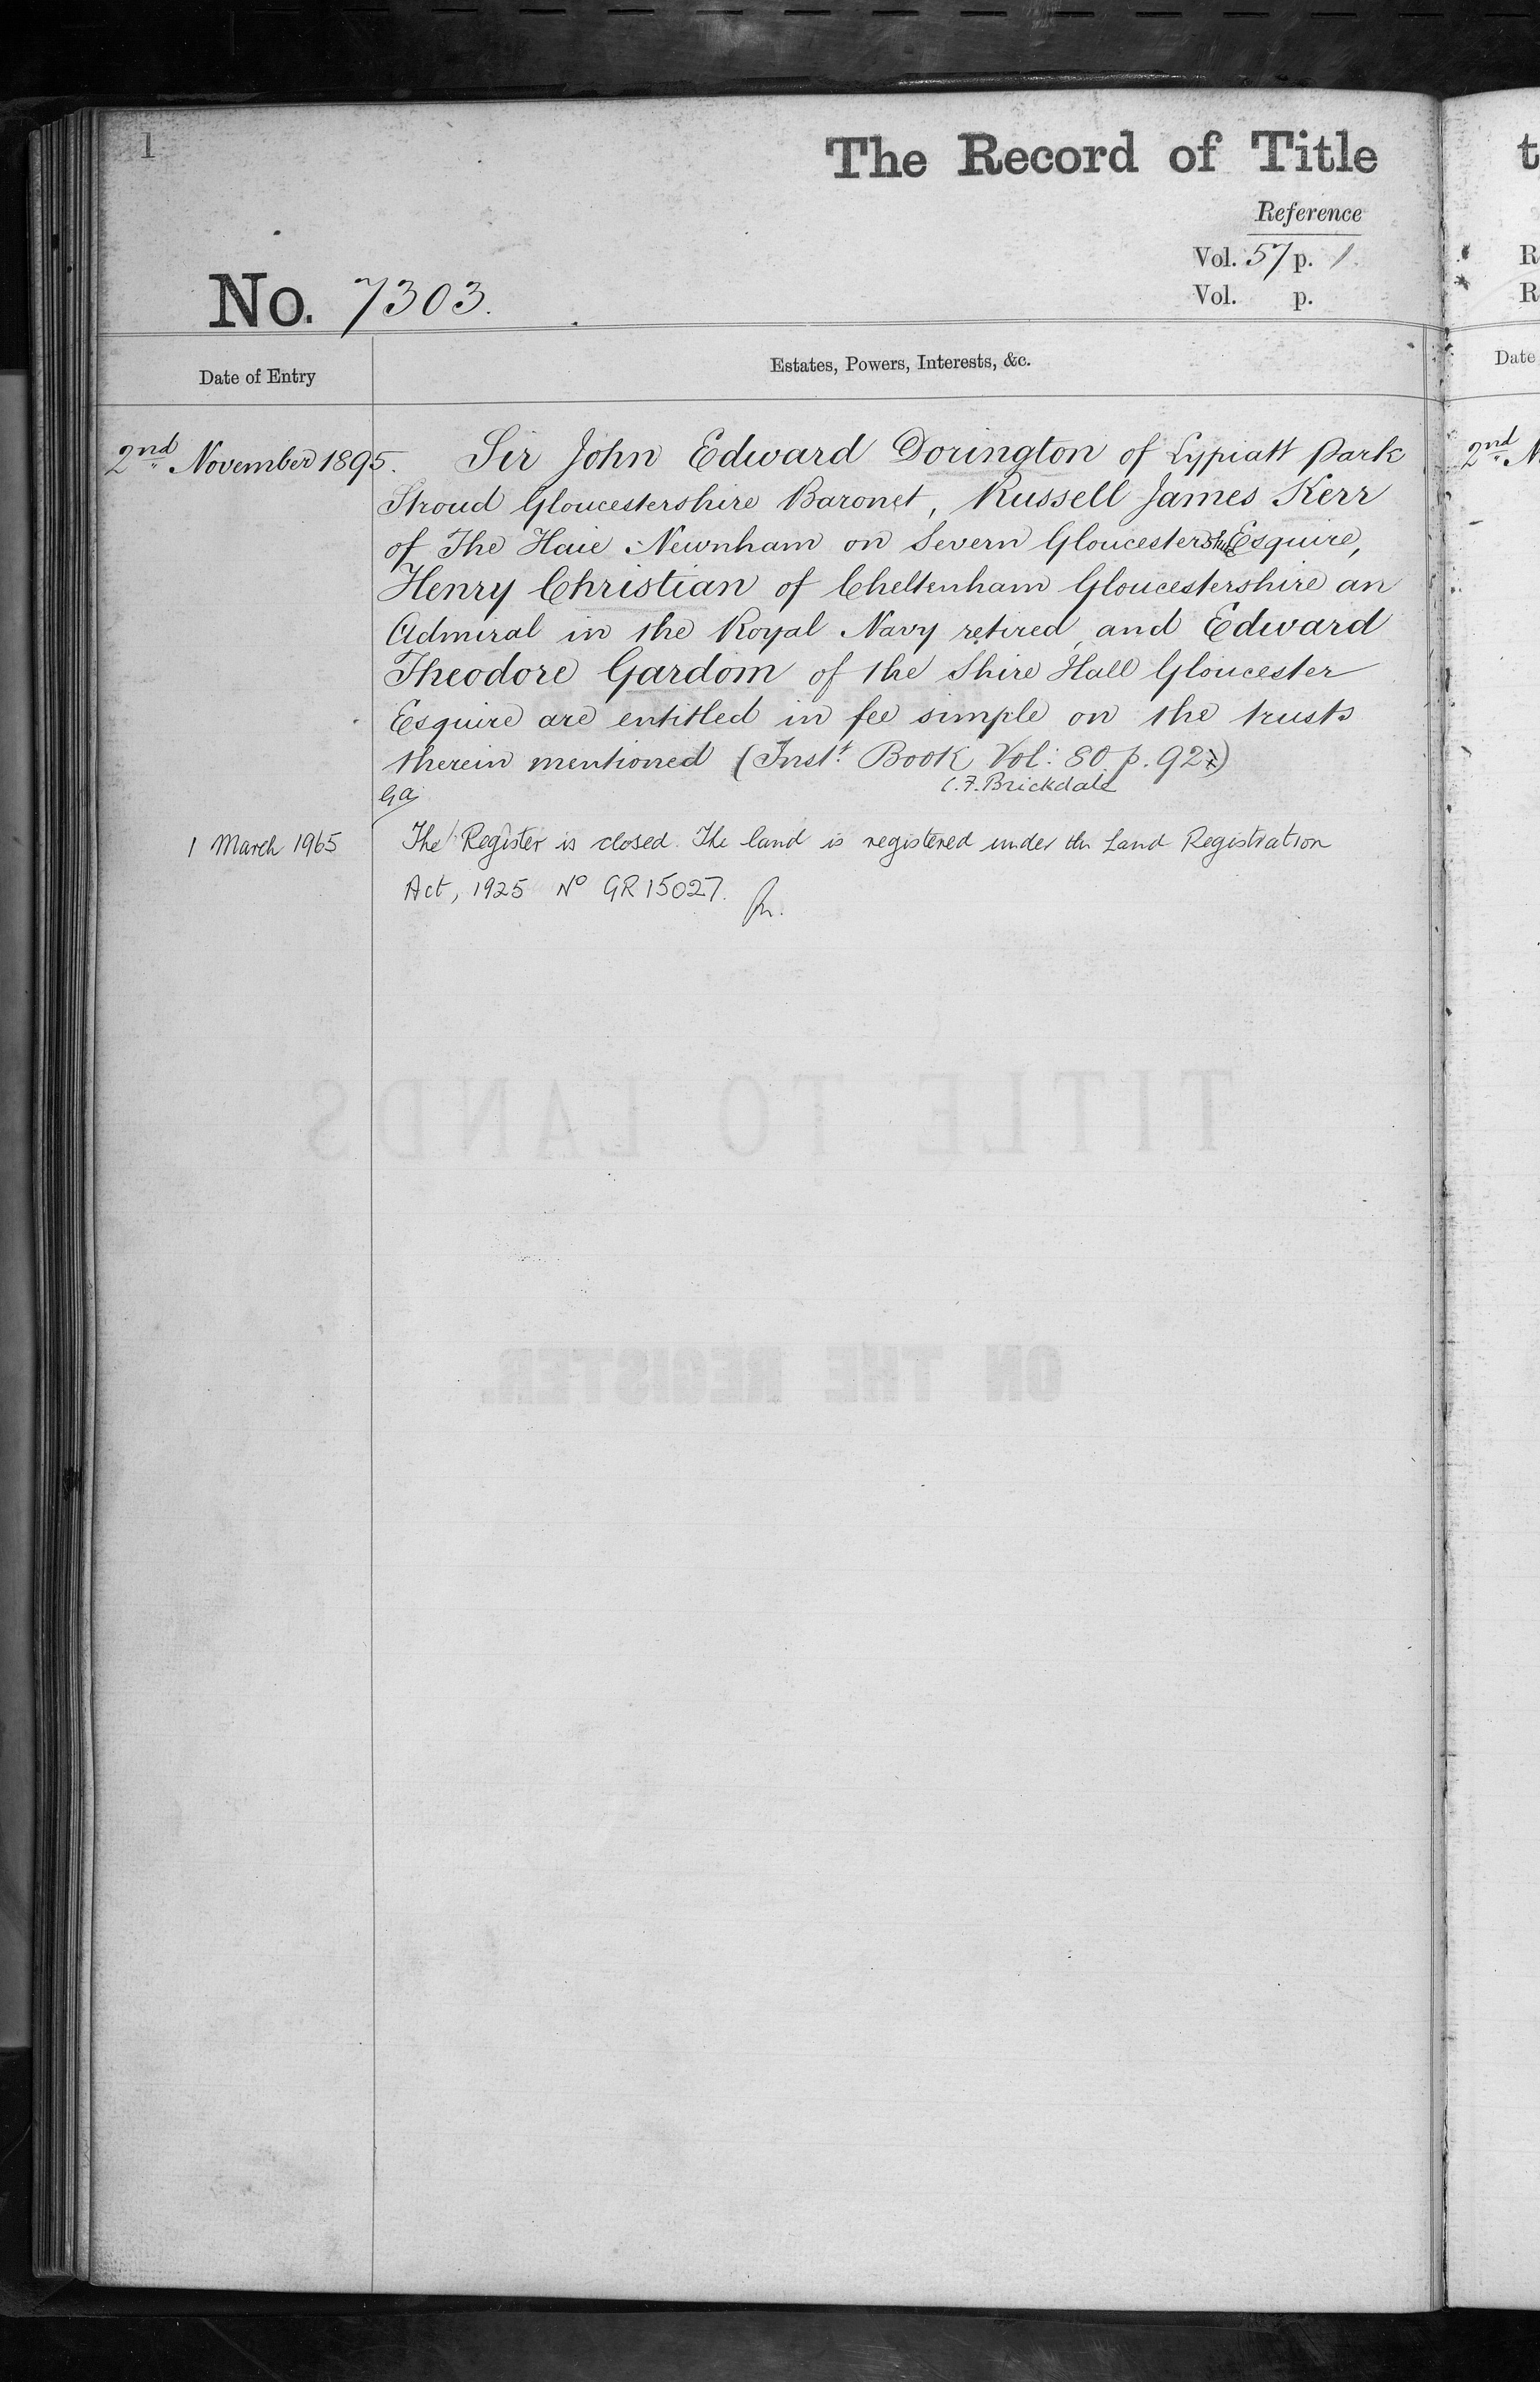 1
The Record of Title
Reference
Vol. 57 p. 1.
Vol. p.
No. 7303.
Date of Entry
Estates, Powers, Interests, &c.
2nd November 1895. Sir John Edward Dorington of Lypiatt Park
Stroud Gloucestershire Baronet, Russell James Kerr
of The Haie Newnham on Severn Gloucestershire Esquire,
Henry Christian of Cheltenham Gloucestershire an
Admiral in the Royal Navy retired, and Edward
Theodore Gardom of the Shire Hall Gloucester
Esquire are entitled in fee simple on the trusts
therein mentioned (Inst. Book Vol: 80. p. 92)
Ga
C.F. Brickdale
1 March 1965 The Register is closed. The land is registered under the Land Registration
Act, 1925 No GR15027.
TITLE TO LANDS
ON THE REGISTER.
t
R
R
Date
2nd N